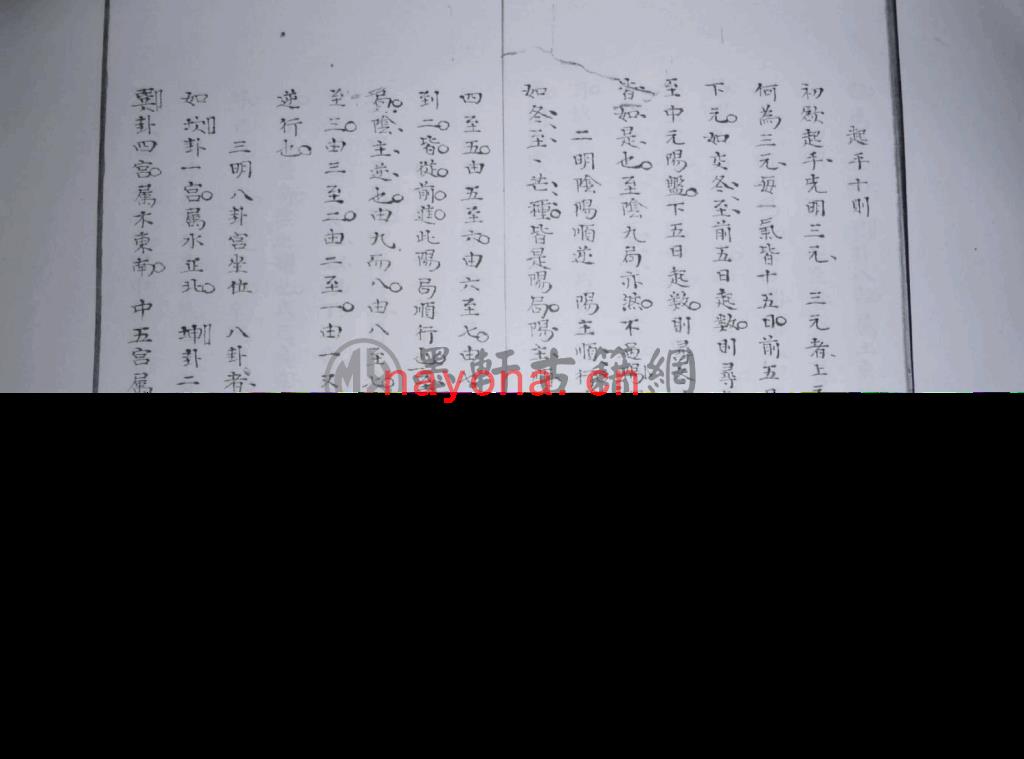 起手十則
初欲起手先明三元 三元者上
何為三元每一氣皆十五日前五日
下元如交冬至前五日起數則尋
至中元陽盤下五日起數則尋
皆如是也至陰九局亦然不過
二明陰陽順逆 陽主順
如冬至芒種皆是陽局陽主
四至五由五至六由六至七由
到二皆從前進此陽局順行
陰主逆也由九而八由八至七
至三由三至二由二至一由一
逆行也
三明八卦宮坐位 八卦者
如坎卦一宮屬水正北 坤卦二
巽卦四宮屬木東南 中五宮屬
墨軒古籍網
nayona.cn